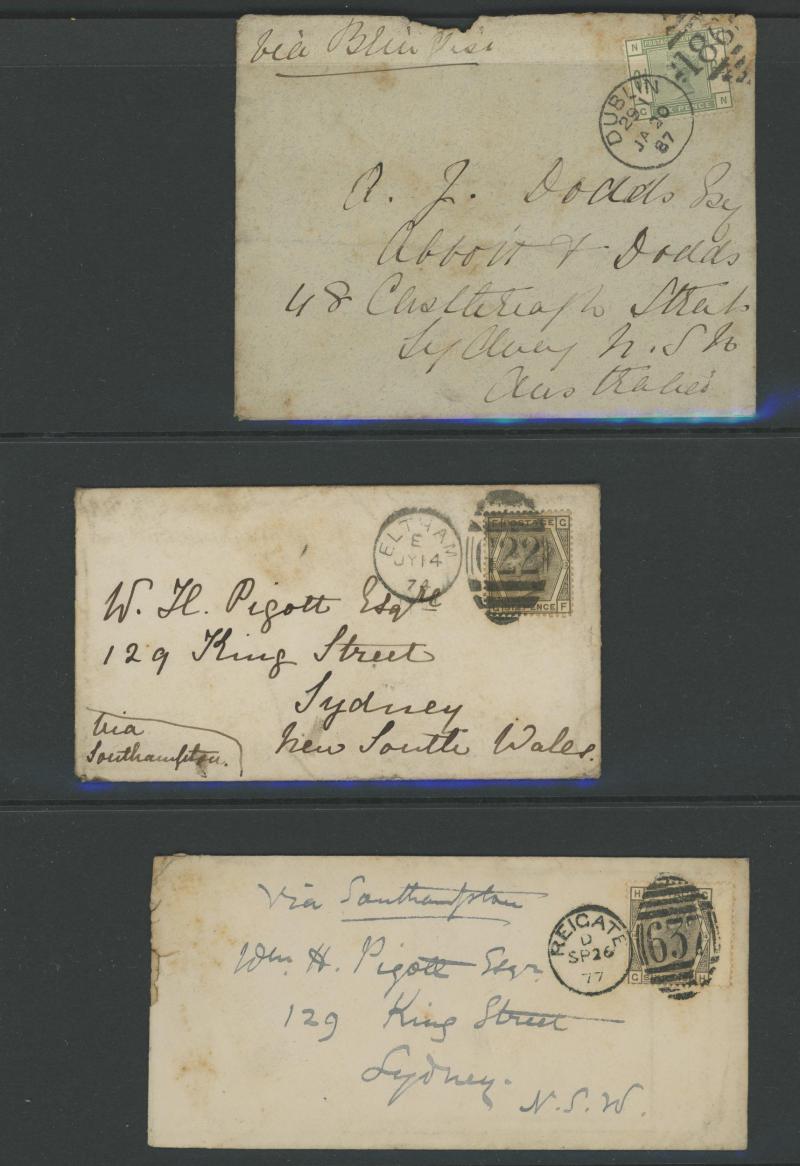 via Brindisi
N
186
POSTAGE
DUBLIN
29
JA 20
87
G SIX PENCE N
A. J. Dodds Esq
Abbott & Dodds
48 Castlereagh Street
Sydney N.S.W
Australia
ELTHAM
E
JY 14
74
F POSTAGE G
22
G SIX PENCE F
W. H. Pigott Esqre
129 King Street
Sydney
New South Wales.
via
Southampton.
via Southampton
REIGATE
D
SP 26
77
H G
637
G H
Wm. H. Pigott Esqr.
129 King Street
Sydney.
N.S.W.